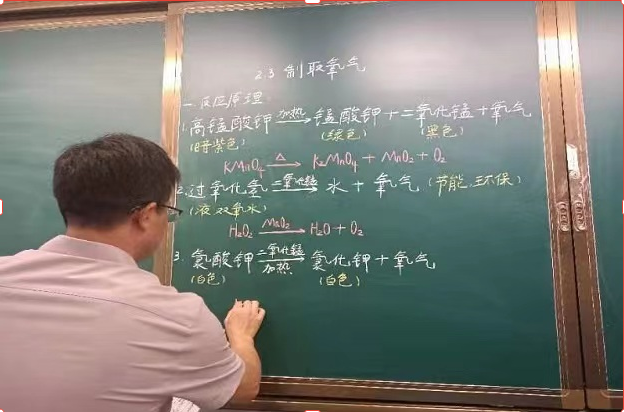 2.3 制取氧气
一. 反应原理
1. 高锰酸钾 加热→ 锰酸钾 + 二氧化锰 + 氧气
(暗紫色) (绿色) (黑色)
KMnO4 △→ K2MnO4 + MnO2 + O2
2. 过氧化氢 二氧化锰→ 水 + 氧气 (节能、环保)
(液 双氧水)
H2O2 MnO2→ H2O + O2
3. 氯酸钾 二氧化锰 加热→ 氯化钾 + 氧气
(白色) (白色)